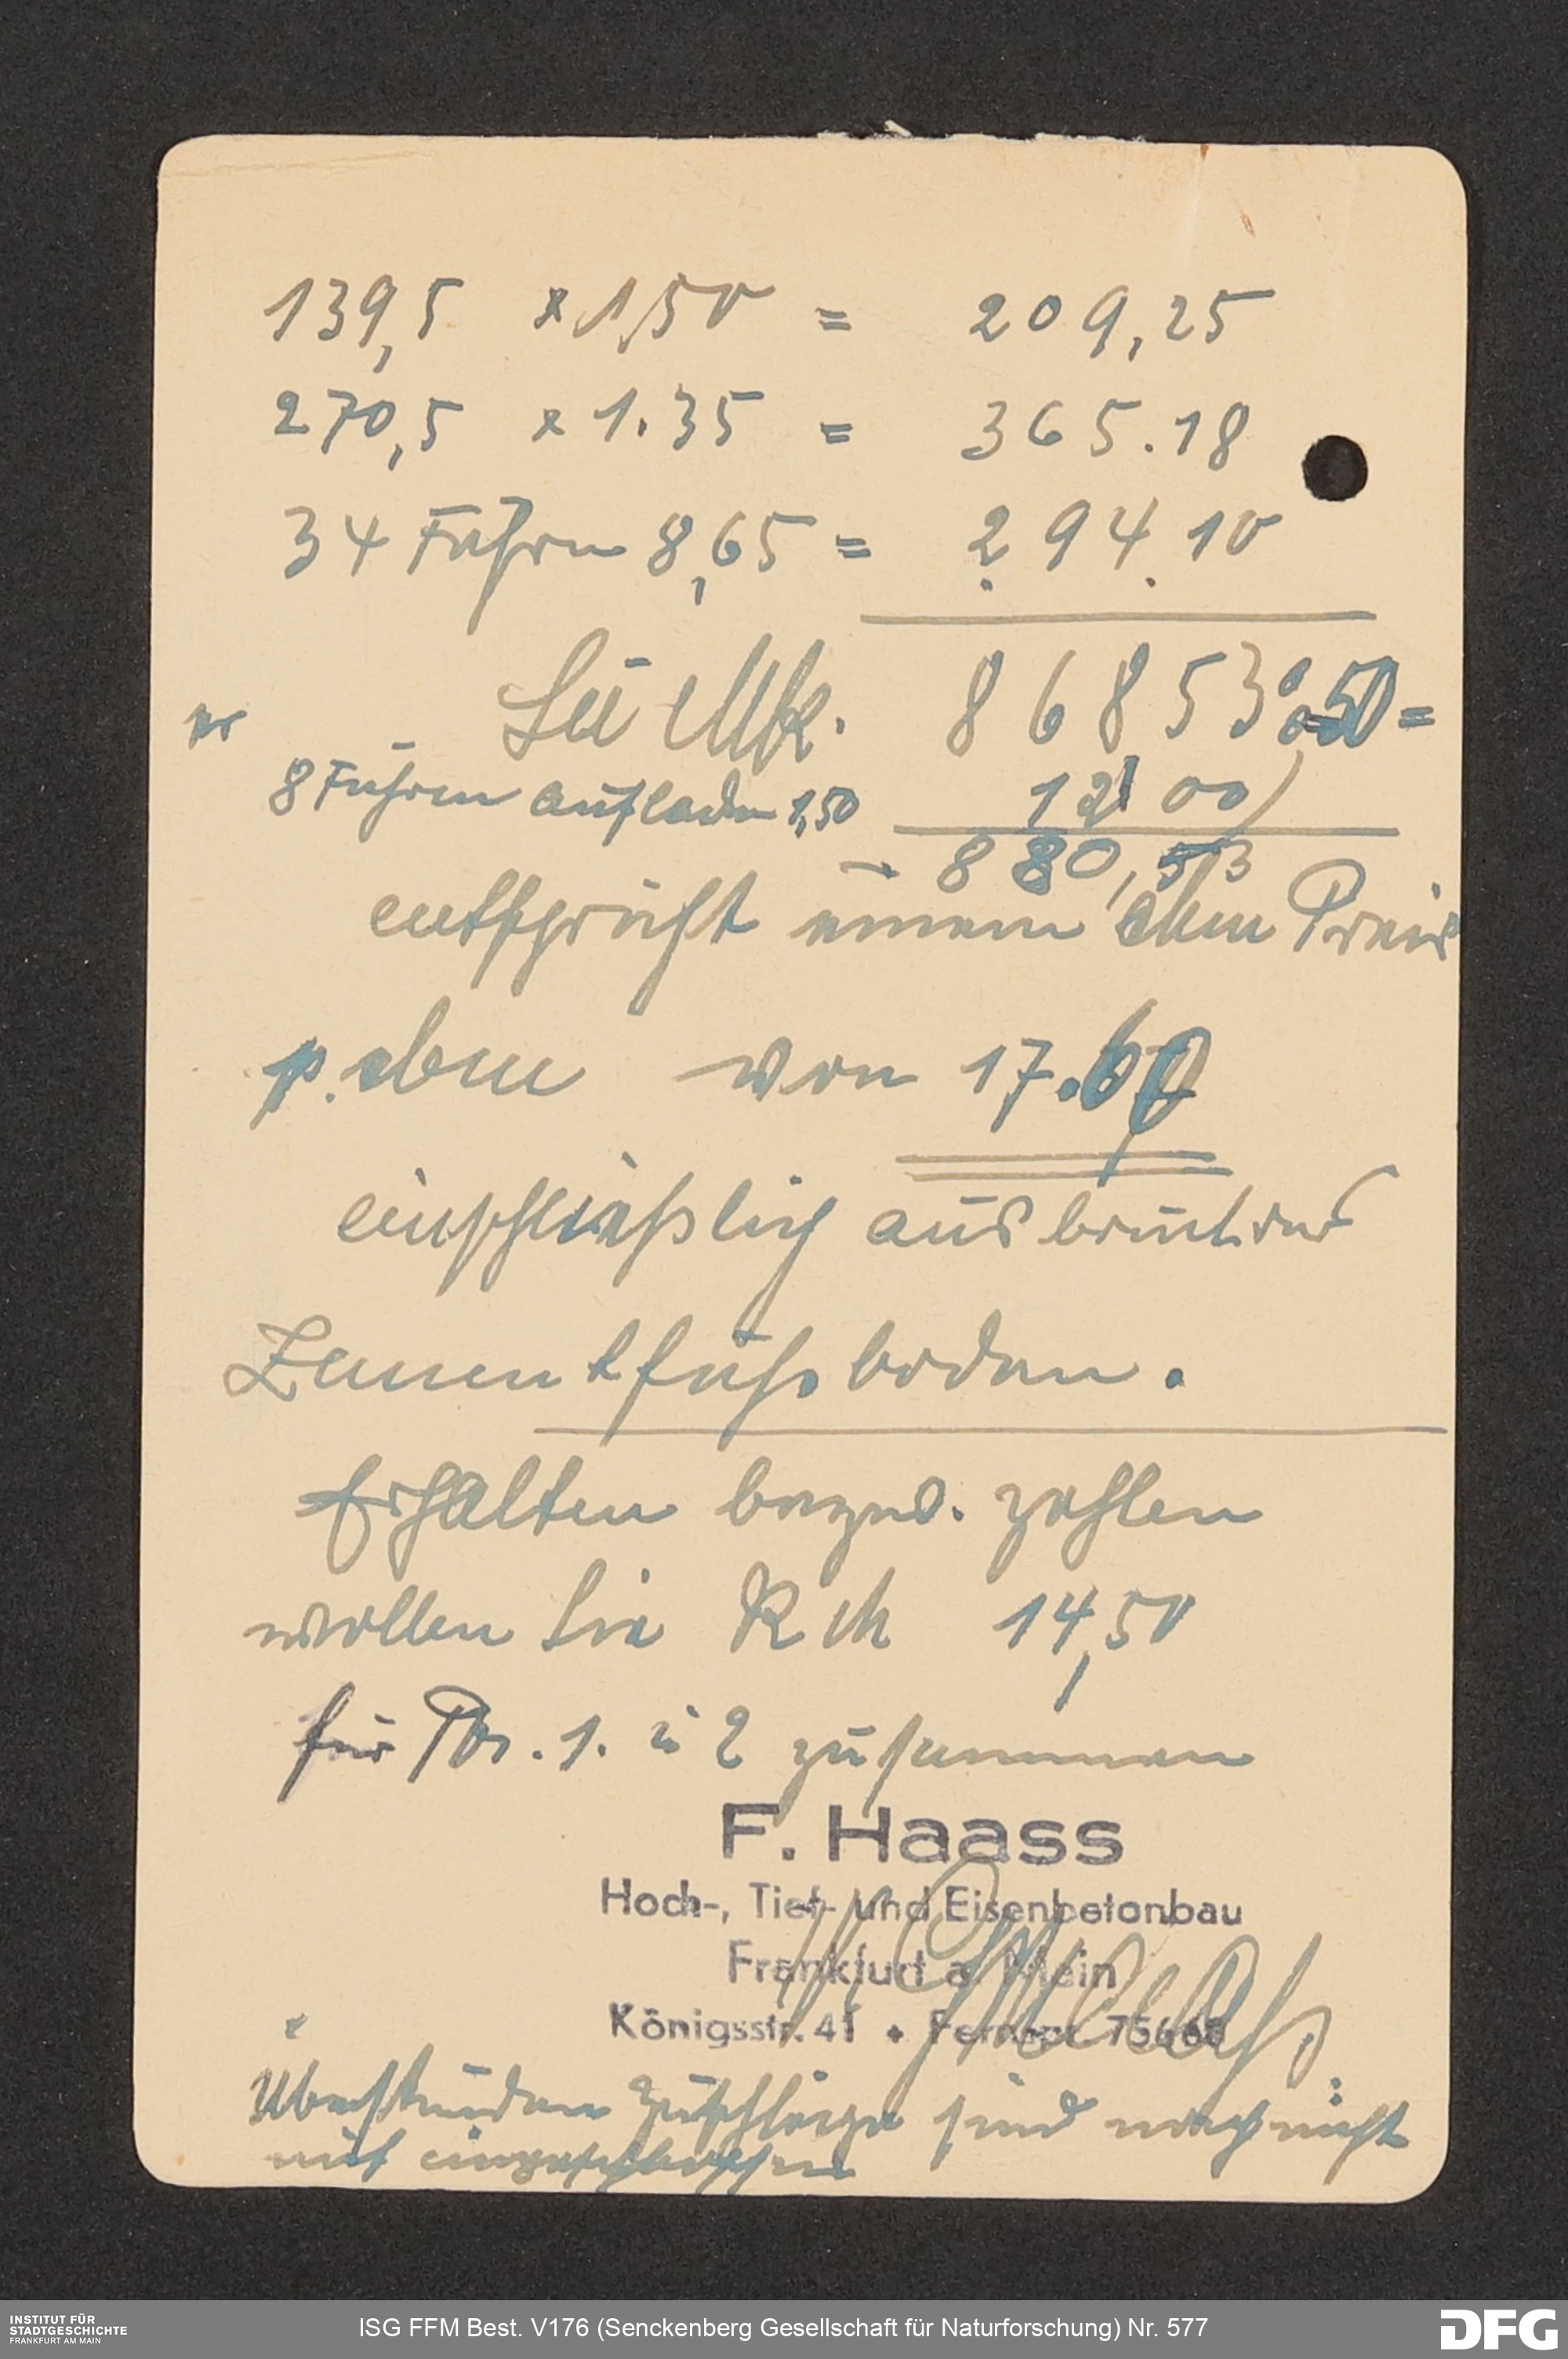 139,5 x 1,50 = 209,25
270,5 x 1.35 = 365.18
34 Fuhren 8,65 = 294.10
Sa Mk. 868 53 : 50 =
8 Fuhren aufladen 1,50 12 00
880,53
entspricht einem cbm Preis
p. cbm von 17.60
einschließlich ausbruch des
Zementfußboden.
Erhalten bezw. zahlen
wollen Sie RM 14,50
für Pos. 1. u 2 zusammen
F. Haass
Hoch-, Tief- und Eisenbetonbau
Frankfurt a. Main
Königsstr. 41 • Fernspr. 75668
Überstunden Zuschläge sind noch nicht
mit eingeschlossen
INSTITUT FÜR
STADTGESCHICHTE
FRANKFURT AM MAIN
ISG FFM Best. V176 (Senckenberg Gesellschaft für Naturforschung) Nr. 577
DFG